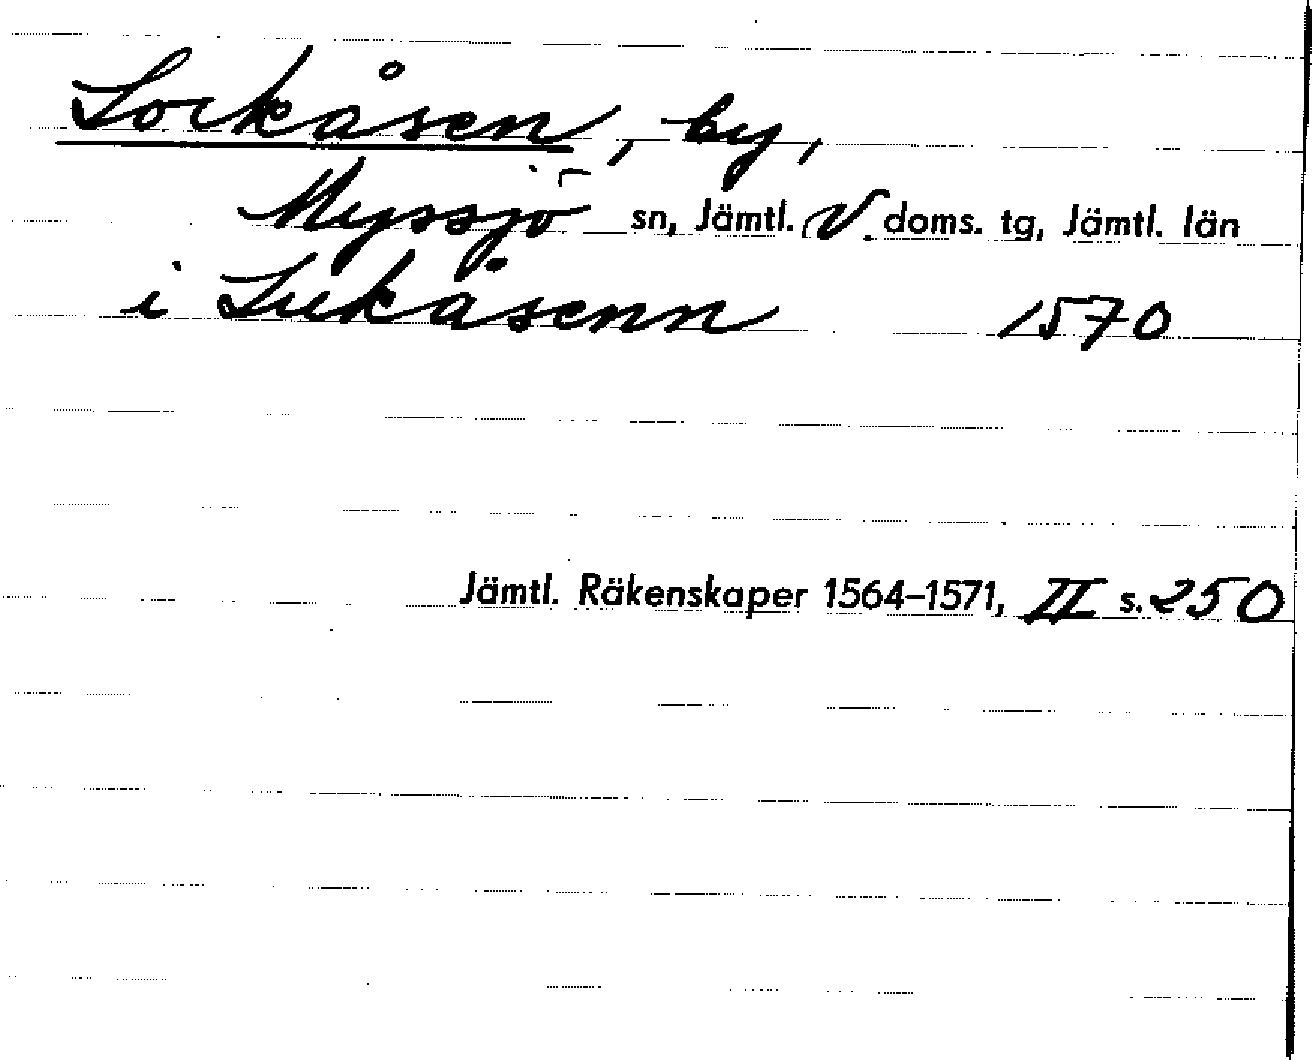 Lockåsen, by,
Myssjö sn, Jämtl. V. doms. tg, Jämtl. län
i Lukåsenn 1570
Jämtl. Räkenskaper 1564–1571, II s. 250